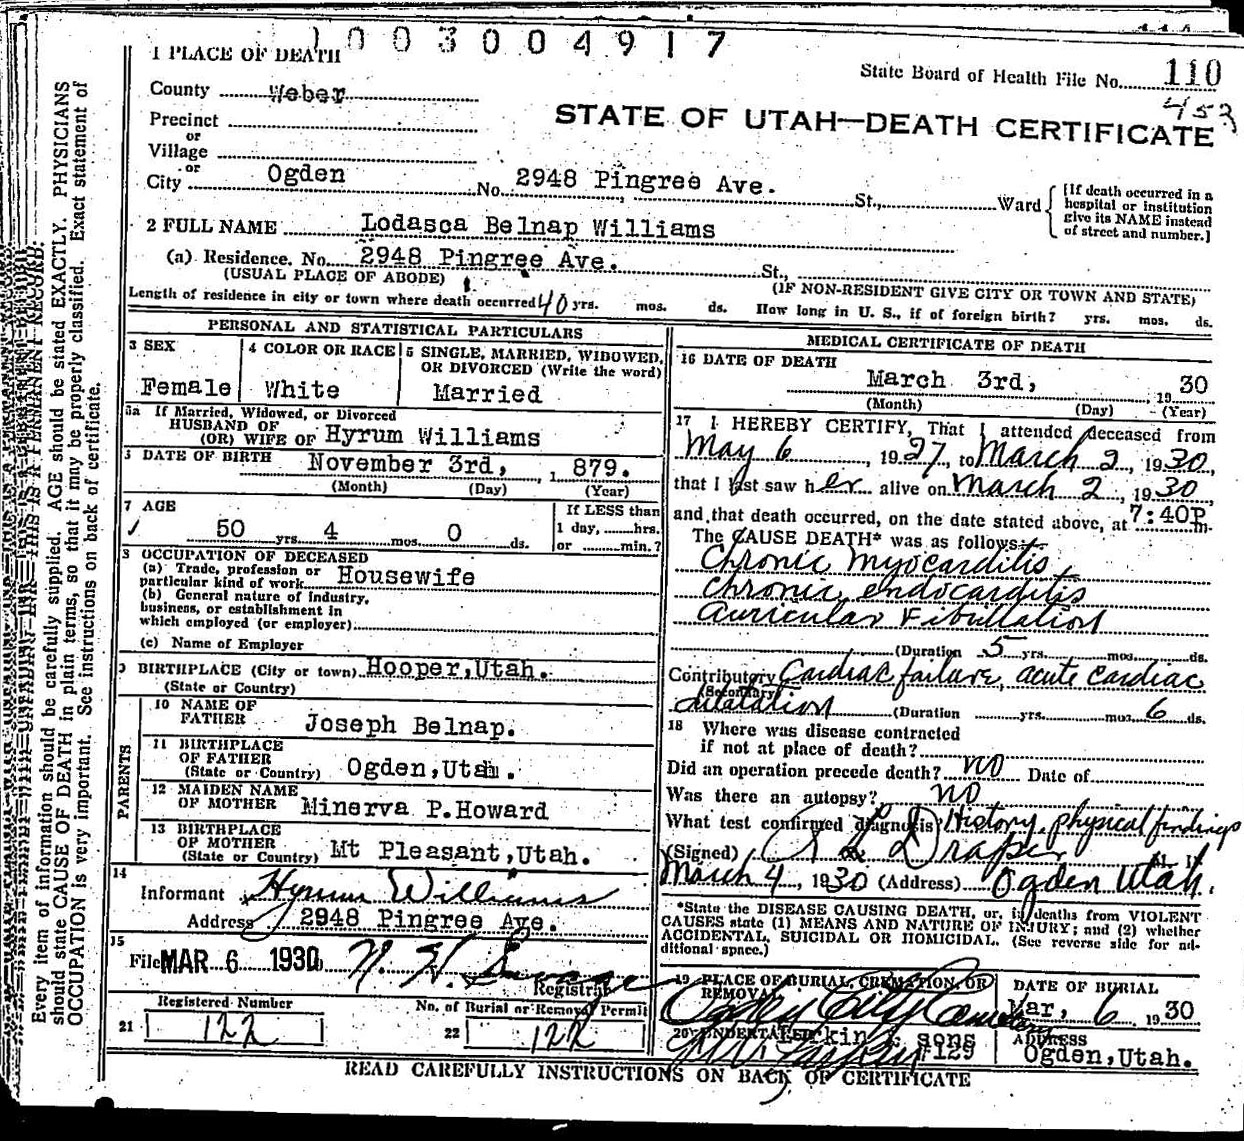 1003004917
1 PLACE OF DEATH
State Board of Health File No. 110
453
County Weber
STATE OF UTAH—DEATH CERTIFICATE
Precinct
or
Village
or
City Ogden No. 2948 Pingree Ave. St., Ward
[If death occurred in a
hospital or institution
give its NAME instead
of street and number.]
2 FULL NAME Lodasca Belnap Williams
(a) Residence. No. 2948 Pingree Ave. St.,
(USUAL PLACE OF ABODE)
(IF NON-RESIDENT GIVE CITY OR TOWN AND STATE)
Length of residence in city or town where death occurred 40 yrs. mos. ds. How long in U. S., if of foreign birth? yrs. mos. ds.
PERSONAL AND STATISTICAL PARTICULARS
3 SEX
Female
4 COLOR OR RACE
White
5 SINGLE, MARRIED, WIDOWED,
OR DIVORCED (Write the word)
Married
5a If Married, Widowed, or Divorced
HUSBAND OF
(OR) WIFE OF Hyrum Williams
DATE OF BIRTH November 3rd, , 1879.
(Month) (Day) (Year)
7 AGE
50 yrs. 4 mos. 0 ds.
If LESS than
1 day, hrs.
or min.?
8 OCCUPATION OF DECEASED
(a) Trade, profession or
particular kind of work Housewife
(b) General nature of industry,
business, or establishment in
which employed (or employer)
(c) Name of Employer
9 BIRTHPLACE (City or town) Hooper,Utah.
(State or Country)
PARENTS
10 NAME OF
FATHER Joseph Belnap.
11 BIRTHPLACE
OF FATHER
(State or Country) Ogden,Utah.
12 MAIDEN NAME
OF MOTHER Minerva P.Howard
13 BIRTHPLACE
OF MOTHER
(State or Country) Mt Pleasant,Utah.
14
Informant Hyrum Williams
Address 2948 Pingree Ave.
15
Filed MAR 6 1930
Registrar
Registered Number
21 122
No. of Burial or Removal Permit
22 122
MEDICAL CERTIFICATE OF DEATH
16 DATE OF DEATH
March 3rd, 1930
(Month) (Day) (Year)
17 I HEREBY CERTIFY, That I attended deceased from
May 6, 1927, to March 2, 1930,
that I last saw her alive on March 2, 1930,
and that death occurred, on the date stated above, at 7:40P m.
The CAUSE DEATH* was as follows:
Chronic myocarditis,
Chronic endocarditis
Auricular Fibrillation
(Duration 5 yrs. mos. ds.
Contributory Cardiac failure, acute cardiac
(Secondary)
dilatation (Duration yrs. mos. 6 ds.
18 Where was disease contracted
if not at place of death?
Did an operation precede death? no Date of
Was there an autopsy? no
What test confirmed diagnosis? History, physical findings
(Signed) Draper
March 4, 1930 (Address) Ogden Utah.
*State the DISEASE CAUSING DEATH, or, in deaths from VIOLENT
CAUSES state (1) MEANS AND NATURE OF INJURY; and (2) whether
ACCIDENTAL, SUICIDAL OR HOMICIDAL. (See reverse side for additional space.)
19 PLACE OF BURIAL, CREMATION, OR
REMOVAL
City Cemetery
DATE OF BURIAL
Mar, 6 1930
20 UNDERTAKER
sons
#129
ADDRESS
Ogden,Utah.
READ CAREFULLY INSTRUCTIONS ON BACK OF CERTIFICATE
THIS IS A PERMANENT RECORD.
Every item of information should be carefully supplied. AGE should be stated EXACTLY. PHYSICIANS
should state CAUSE OF DEATH in plain terms, so that it may be properly classified. Exact statement of
OCCUPATION is very important. See instructions on back of certificate.